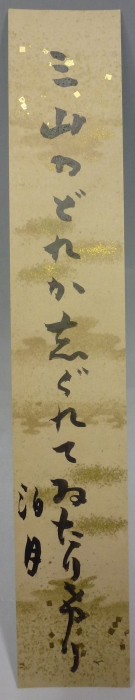 三山のどれか志ぐれてゐたりけり
泊月